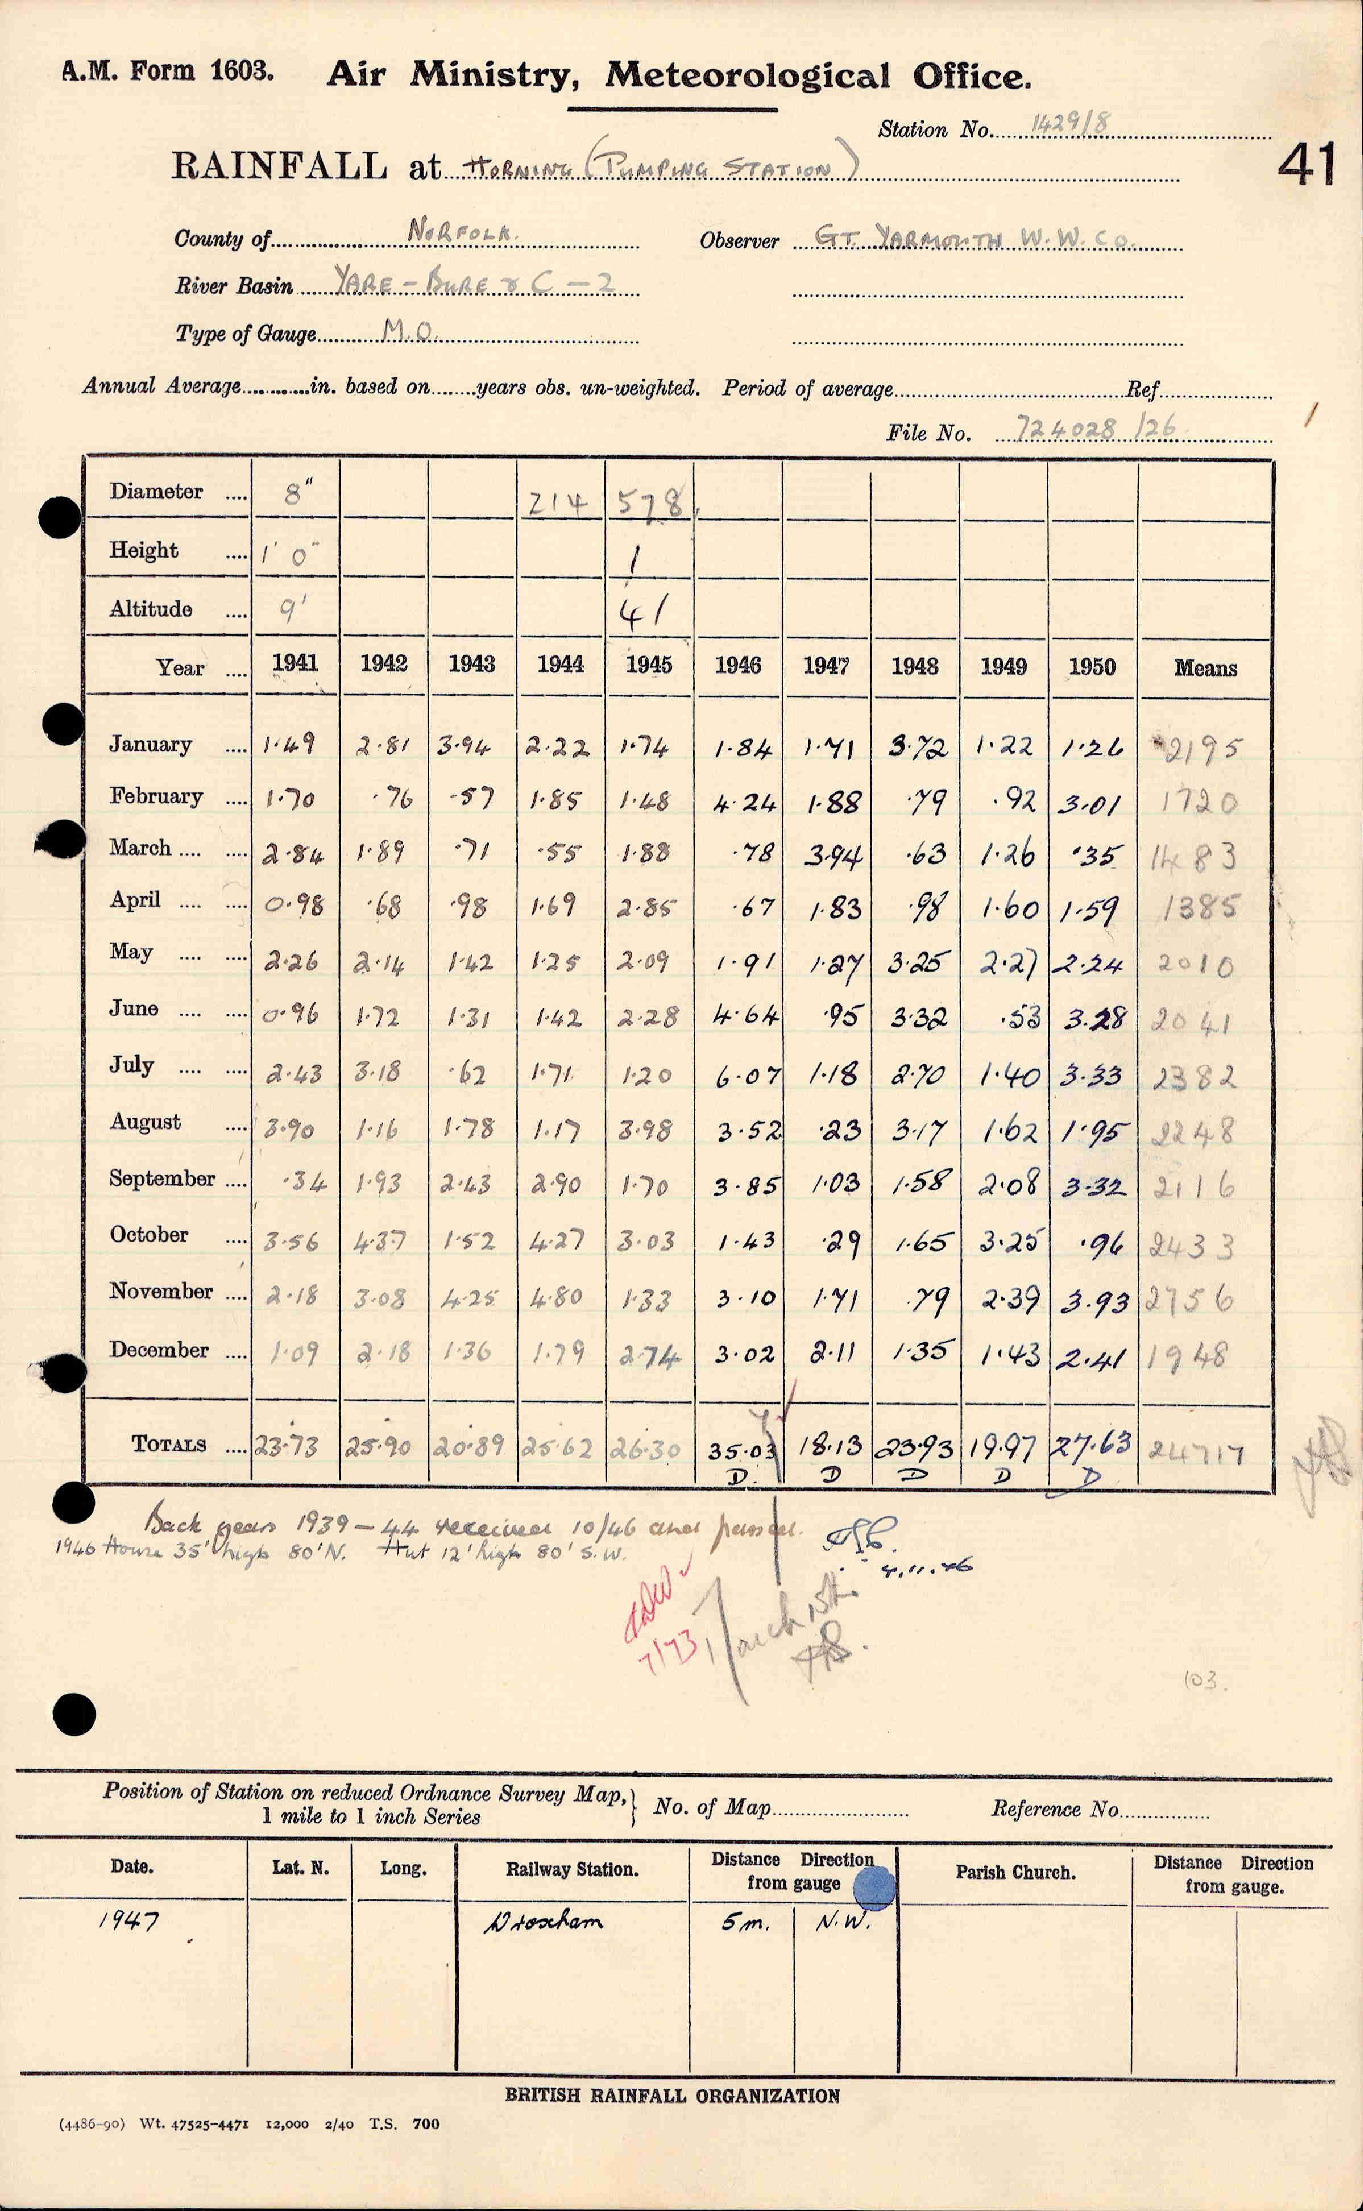 A.M. Form 1603. Air Ministry, Meteorological Office.
Station No. 1429/8
41
RAINFALL at HORNING (PUMPING STATION)
County of NORFOLK. Observer GT. YARMOUTH W.W.CO.
River Basin YARE - BURE & C - 2
Type of Gauge M.O.
Annual Average in. based on years obs. un-weighted. Period of average Ref
File No. 724028/26
Diameter 8" 214 578
Height 1' 0" 1
Altitude 9' 41
Year 1941 1942 1943 1944 1945 1946 1947 1948 1949 1950 Means
January 1.49 2.81 3.94 2.22 1.74 1.84 1.71 3.72 1.22 1.26 2195
February 1.70 .76 .57 1.85 1.48 4.24 1.88 .79 .92 3.01 1720
March 2.84 1.89 .71 .55 1.88 .78 3.94 .63 1.26 .35 1483
April 0.98 .68 .98 1.69 2.85 .67 1.83 .98 1.60 1.59 1385
May 2.26 2.14 1.42 1.25 2.09 1.91 1.27 3.25 2.27 2.24 2010
June 0.96 1.72 1.31 1.42 2.28 4.64 .95 3.32 .53 3.28 2041
July 2.43 3.18 .62 1.71 1.20 6.07 1.18 2.70 1.40 3.33 2382
August 3.90 1.16 1.78 1.17 3.98 3.52 .23 3.17 1.62 1.95 2248
September .34 1.93 2.43 2.90 1.70 3.85 1.03 1.58 2.08 3.32 2116
October 3.56 4.37 1.52 4.27 3.03 1.43 .29 1.65 3.25 .96 2433
November 2.18 3.08 4.25 4.80 1.33 3.10 1.71 .79 2.39 3.93 2756
December 1.09 2.18 1.36 1.79 2.74 3.02 2.11 1.35 1.43 2.41 1948
TOTALS 23.73 25.90 20.89 25.62 26.30 35.03 18.13 23.93 19.97 27.63 24717
D D D D D
Back years 1939-44 received 10/46 and passed.
1946 House 35' high 80' N. Hut 12' high 80' S.W.
4.11.46
7/73
103.
Position of Station on reduced Ordnance Survey Map, 1 mile to 1 inch Series } No. of Map Reference No.
Date. Lat. N. Long. Railway Station. Distance Direction from gauge Parish Church. Distance Direction from gauge.
1947 Wroxham 5m. N.W.
BRITISH RAINFALL ORGANIZATION
(4486-90) Wt. 47525-4471 12,000 2/40 T.S. 700